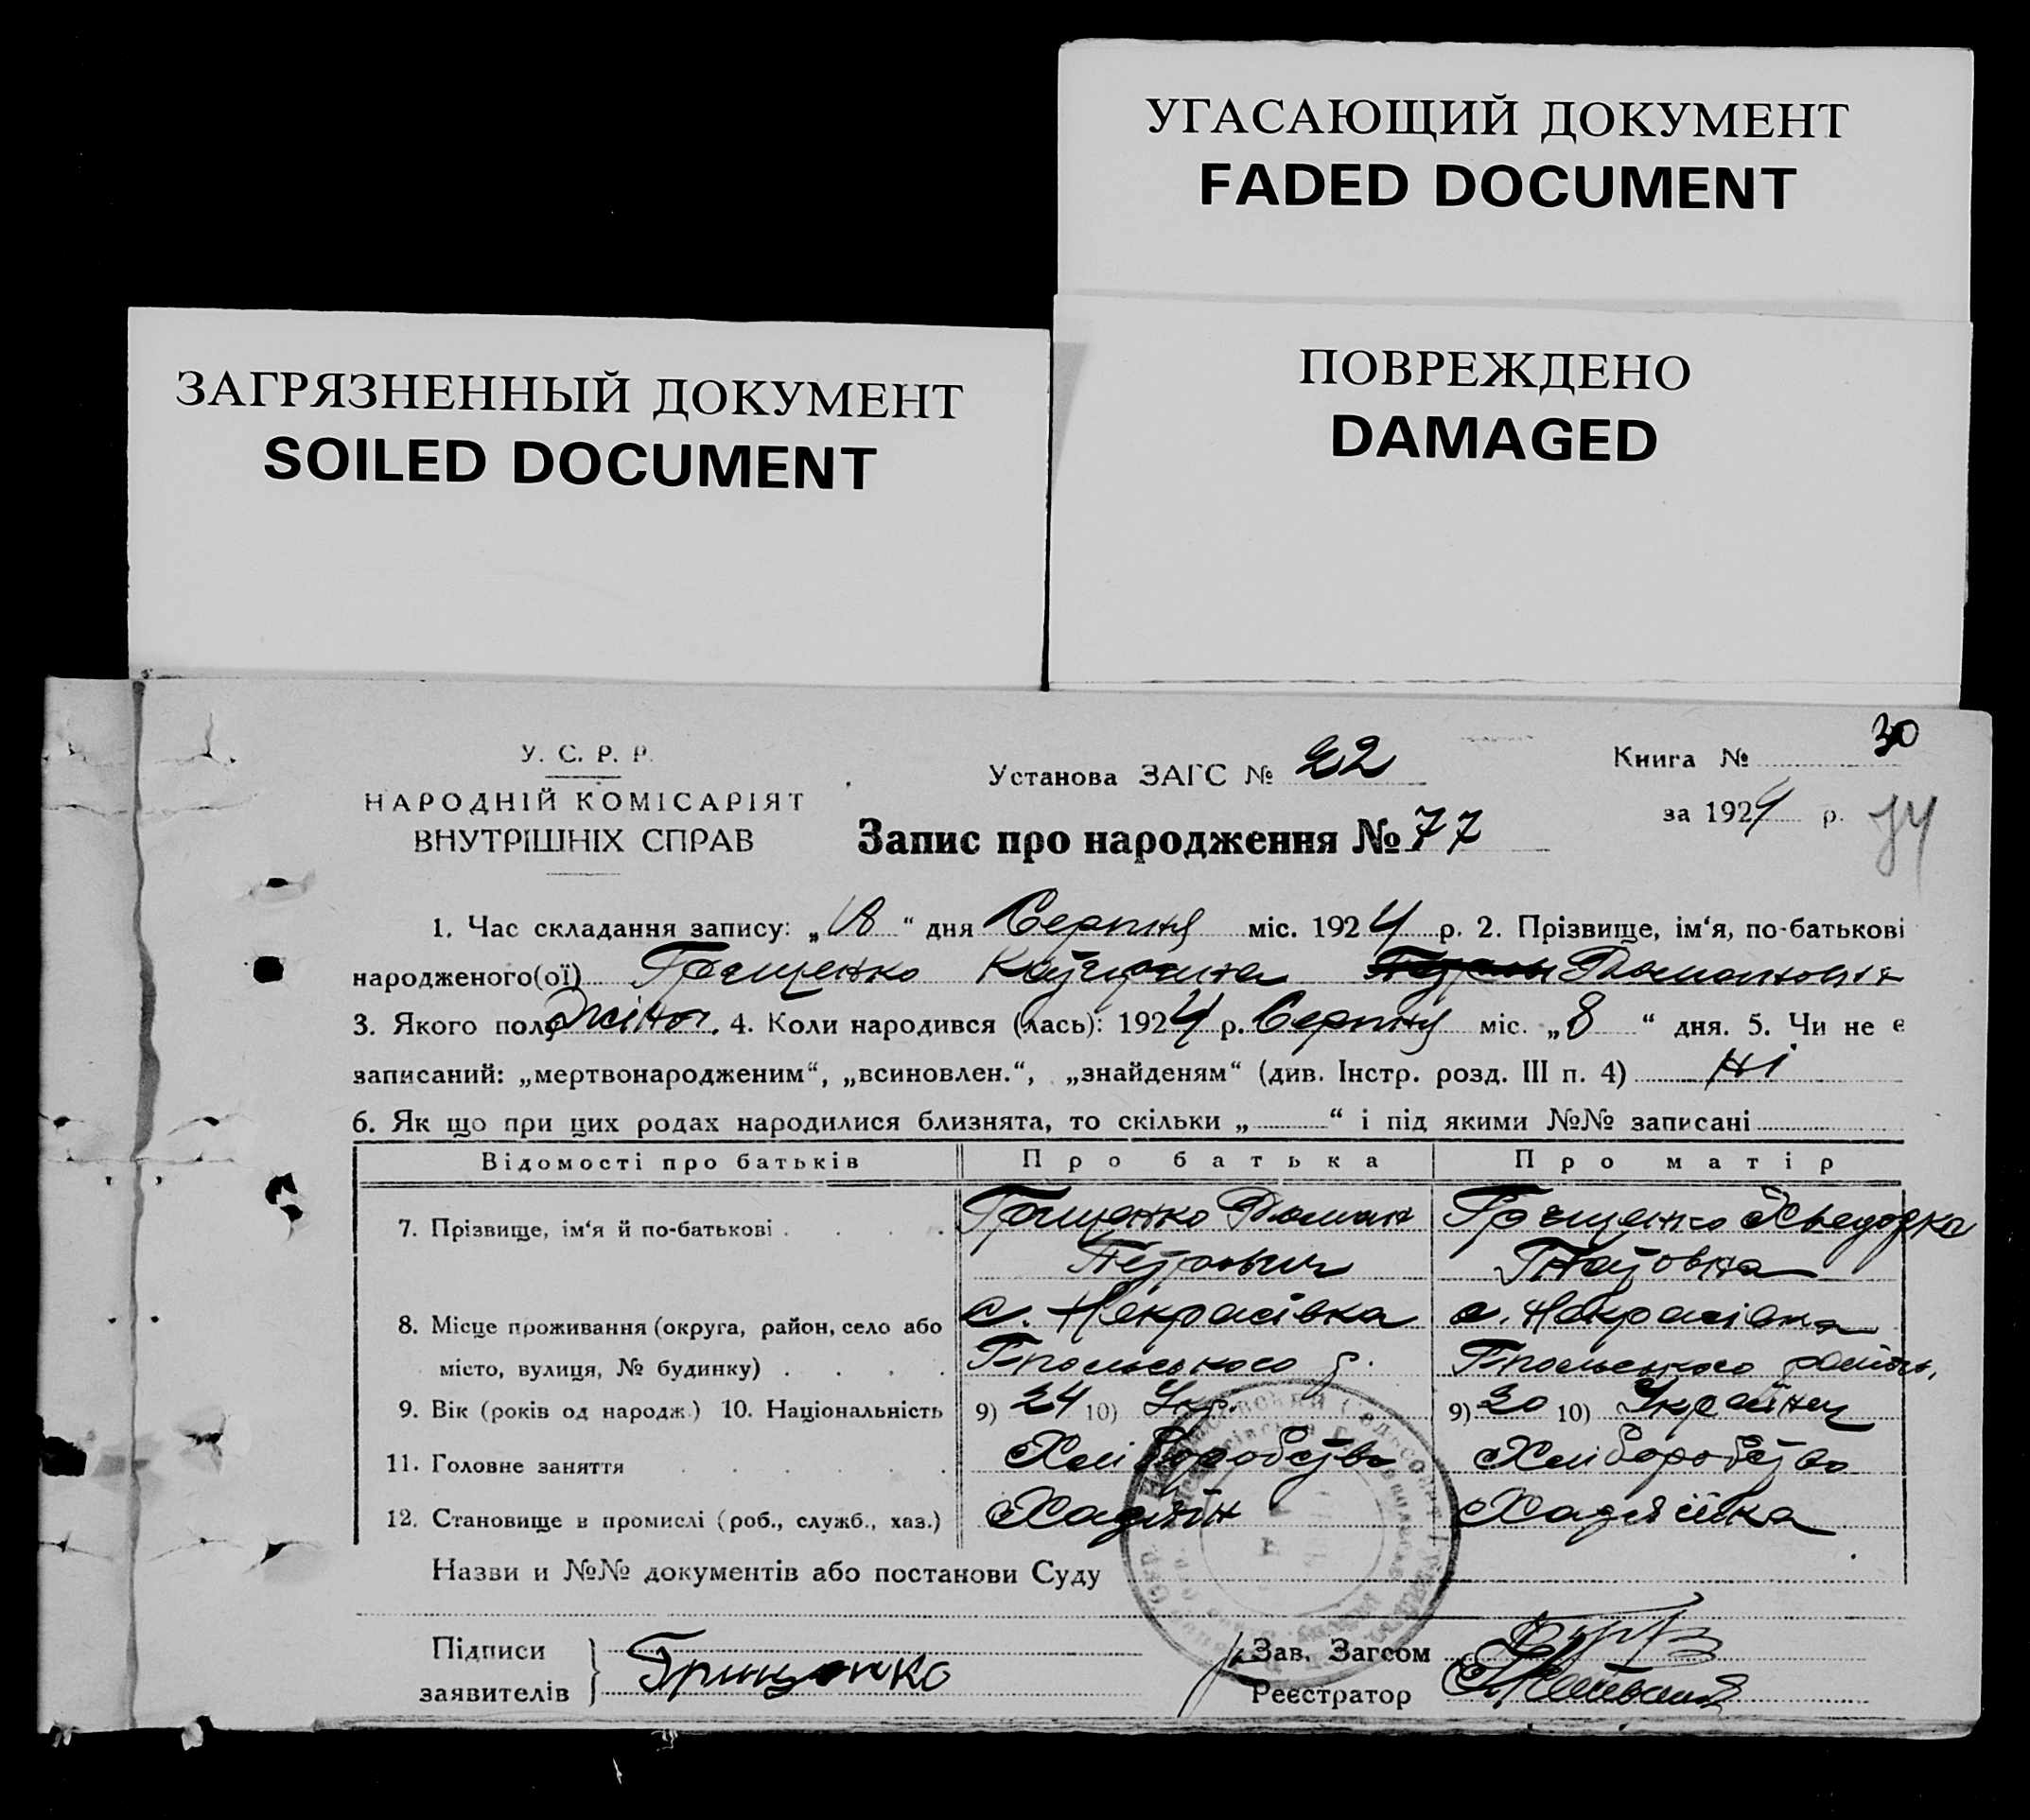 УГАСАЮЩИЙ ДОКУМЕНТ
FADED DOCUMENT
ЗАГРЯЗНЕННЫЙ ДОКУМЕНТ
SOILED DOCUMENT
ПОВРЕЖДЕНО
DAMAGED
У. С. Р. Р.
НАРОДНІЙ КОМІСАРІЯТ
ВНУТРІШНІХ СПРАВ
Установа ЗАГС № 22
Запис про народження № 77
Книга №
30
за 1924 р.
1. Час складання запису: „ “ дня Серпня міс. 1924 р. 2. Прізвище, ім‘я, по-батькові
народженого(ої) Грищенко Романовна
3. Якого полу жіноч. 4. Коли народився (лась): 1924 р. Серпня міс. „8“ дня. 5. Чи не є
записаний: „мертвонародженим“, „всиновлен.“, „знайденям“ (див. Інстр. розд. III п. 4) ні
6. Як що при цих родах народилися близнята, то скільки „ “ і під якими №№ записані
Відомості про батьків Про батька Про матір
7. Прізвище, ім‘я й по-батькові Грищенко Роман Грищенко
Петрович Гнатовна
8. Місце проживання (округа, район, село або с. Некрасівка с. Некрасівка
місто, вулиця, № будинку)
9. Вік (років од народж.) 10. Національність 9) 24 10) Укр. 9) 20 10) Україн
11. Головне заняття Хліборобство Хліборобство
12. Становище в промислі (роб., служб., хаз.) Хадяїн Хадяїка
Назви и №№ документів або постанови Суду
Підписи
заявителів
Грищенко
Зав. Загсом
Реєстратор